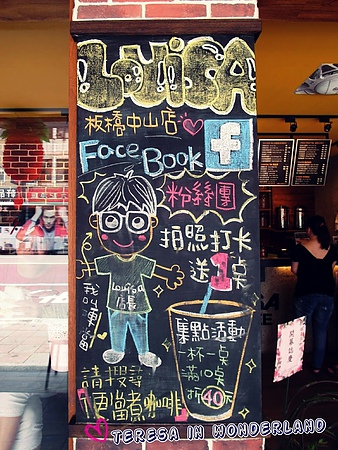 LOUiSA
板橋中山店
FaceBook
f
粉絲團
拍照打卡
送1点
Louisa
店長
集點活動
一杯一点
滿10点
折40元
請搜尋
更當煮咖啡
TERESA IN WONDERLAND